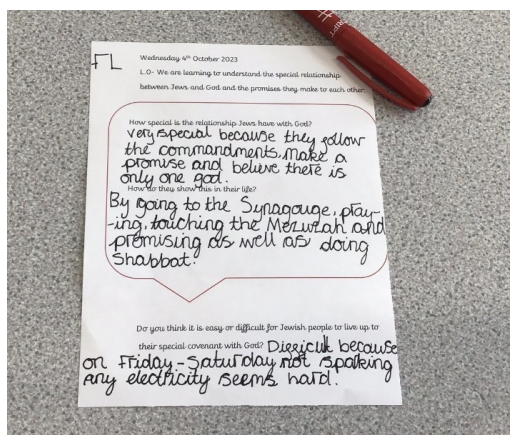 FL
Wednesday 4th October 2023
L.O- We are learning to understand the special relationship
between Jews and God and the promises they make to each other.
How special is the relationship Jews have with God?
very special because they follow
the commandments, make a
promise and believe there is
only one god.
How do they show this in their life?
By going to the Synagouge, pray-
-ing, touching the Mezuzah and
promising as well as doing
Shabbat.
Do you think it is easy or difficult for Jewish people to live up to
their special covenant with God? Difficult because
on Friday-Saturday not sparking
any electricity seems hard.